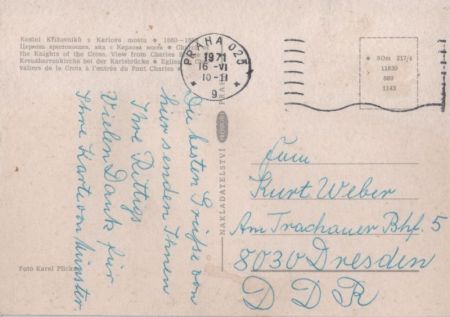 Kostel Křižovníků z Karlova mostu • 1680–
Церковь крестоносцев, вид с Карлова моста •
the Knights of the Cross. View from Charles
Kreuzherrenkirche bei der Karlsbrücke • Eglise
valiers de la Croix à l'entrée du Pont Charles •
PRAHA 025
1971
16. VI
10-11
9
80m 217/s
11839
889
1143
Die besten Grüße von
hier senden Ihnen
Ihre Rettigs
Vielen Dank für
Ihre Karte von Münster
NAKLADATELSTVÍ
Fam
Kurt Weber
Am Trachauer Bhf. 5
8030 Dresden
DDR
Foto Karel Plicka